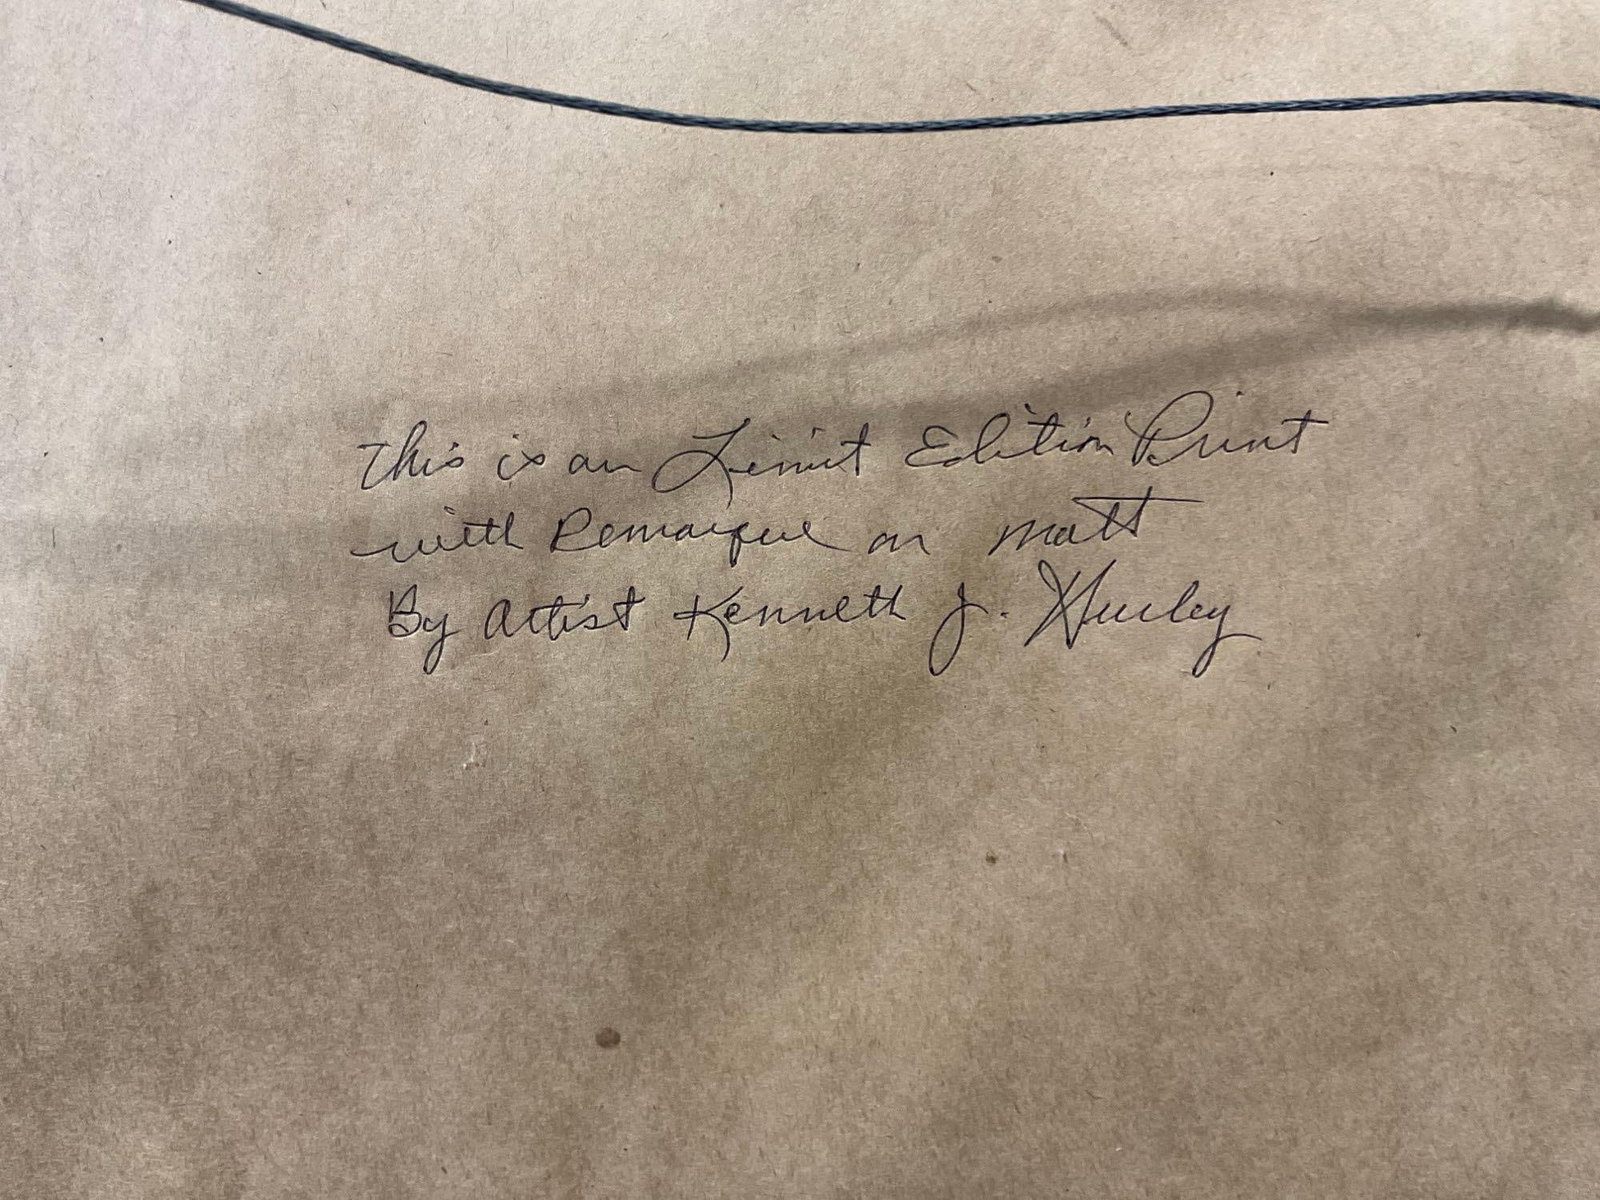 This is an Limit Edition Print
with Remarque on matt
By Artist Kenneth J. Hurley